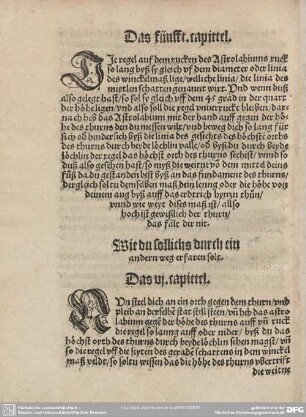 Das fünfft. capittel.
DIe regel auf dem rucken des Astrolabiums ruck
so lang byß sy gleich vf dem diameter oder linia
des winckelmaß lige/ welliche linia/ die linia des
mittlen schatten genannt wirt. Vnd wenn duß
also gelegt hast/ so sol sy gleich vff dem 45 grad in der quart
der höhe ligen/ vnd also soll die regel vnuerruckt bleiben/ dar
nach heb das Astrolabium mit der hand auff gegen der höh
he des thurns den du messen wilt/ vnd beweg dich so lang für
sich oder hindersich byß die linia des gesichts des höchst orths
des thurns durch beyde löchlin valle/ oder byß du durch beyde
löchlin der regel das höchst orth des thurns sechst/ vnnd so
duß also gesehen hast/ so myß die weite vō dem mitte deins
fuß da du gestanden bist byß an das fundament des thurns/
der gleich solt u demselben maß dein leng oder die höhe von
deinem aug byß auff das erdtrich hynzu thun/
vnnd wie weyt dises maß ist/ allso
hoch ist gewißlich der thurn/
das fält dir nit.
Wie du sollichs durch ein
andern weg erfaren solt.
Das vj. capittel.
NUn stell dich an ein orth gegen dem thurn/ vnd
bleib an derselbē stat still steen/ vn̄ heb das astro
labium gege der höhe des thurns auff vn̄ ruck
die regel so lanng auff oder nider/ byß du das
höchst orth des thurns durch beyde löchlin sehen magst/ vn̄
so die regel vff die seyten des gerade schattens in dem winckel
maß veldt/ so soltu wissen das die höhe des thurns vbertrifft
die weitne